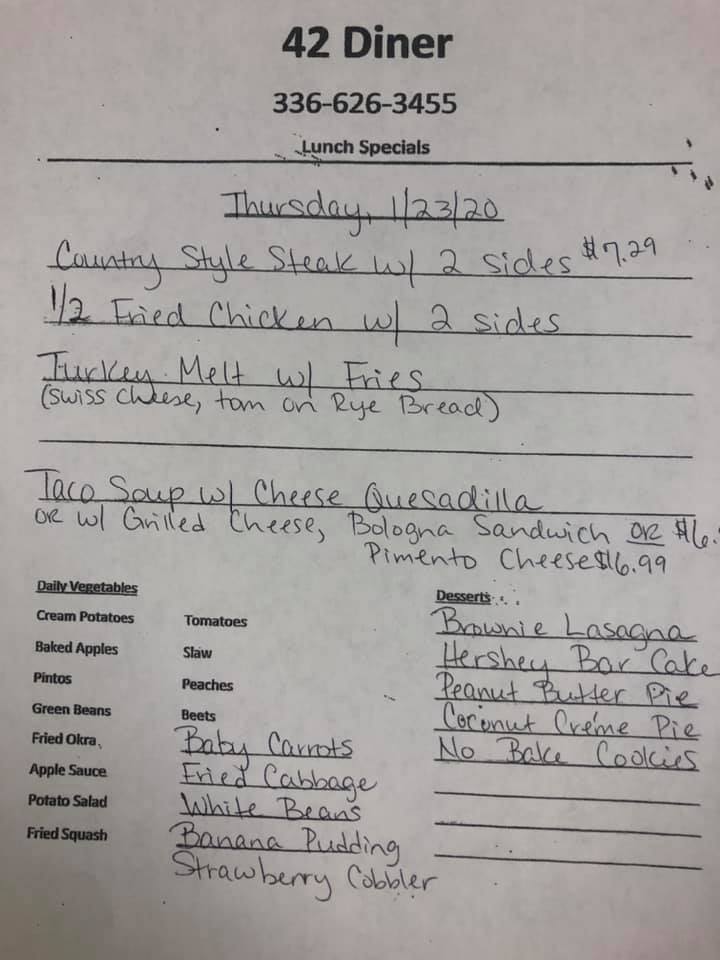 42 Diner
336-626-3455
Lunch Specials
Thursday, 1/23/20
Country Style Steak w/ 2 sides $7.29
1/2 Fried Chicken w/ 2 sides
Turkey Melt w/ Fries
(swiss cheese, tom on Rye Bread)
Taco Soup w/ Cheese Quesadilla
OR w/ Grilled Cheese, Bologna Sandwich OR $6.
Pimento Cheese $6.99
Daily Vegetables
Cream Potatoes
Baked Apples
Pintos
Green Beans
Fried Okra
Apple Sauce
Potato Salad
Fried Squash
Tomatoes
Slaw
Peaches
Beets
Baby Carrots
Fried Cabbage
White Beans
Banana Pudding
Strawberry Cobbler
Desserts
Brownie Lasagna
Hershey Bar Cake
Peanut Butter Pie
Coconut Créme Pie
No Bake Cookies